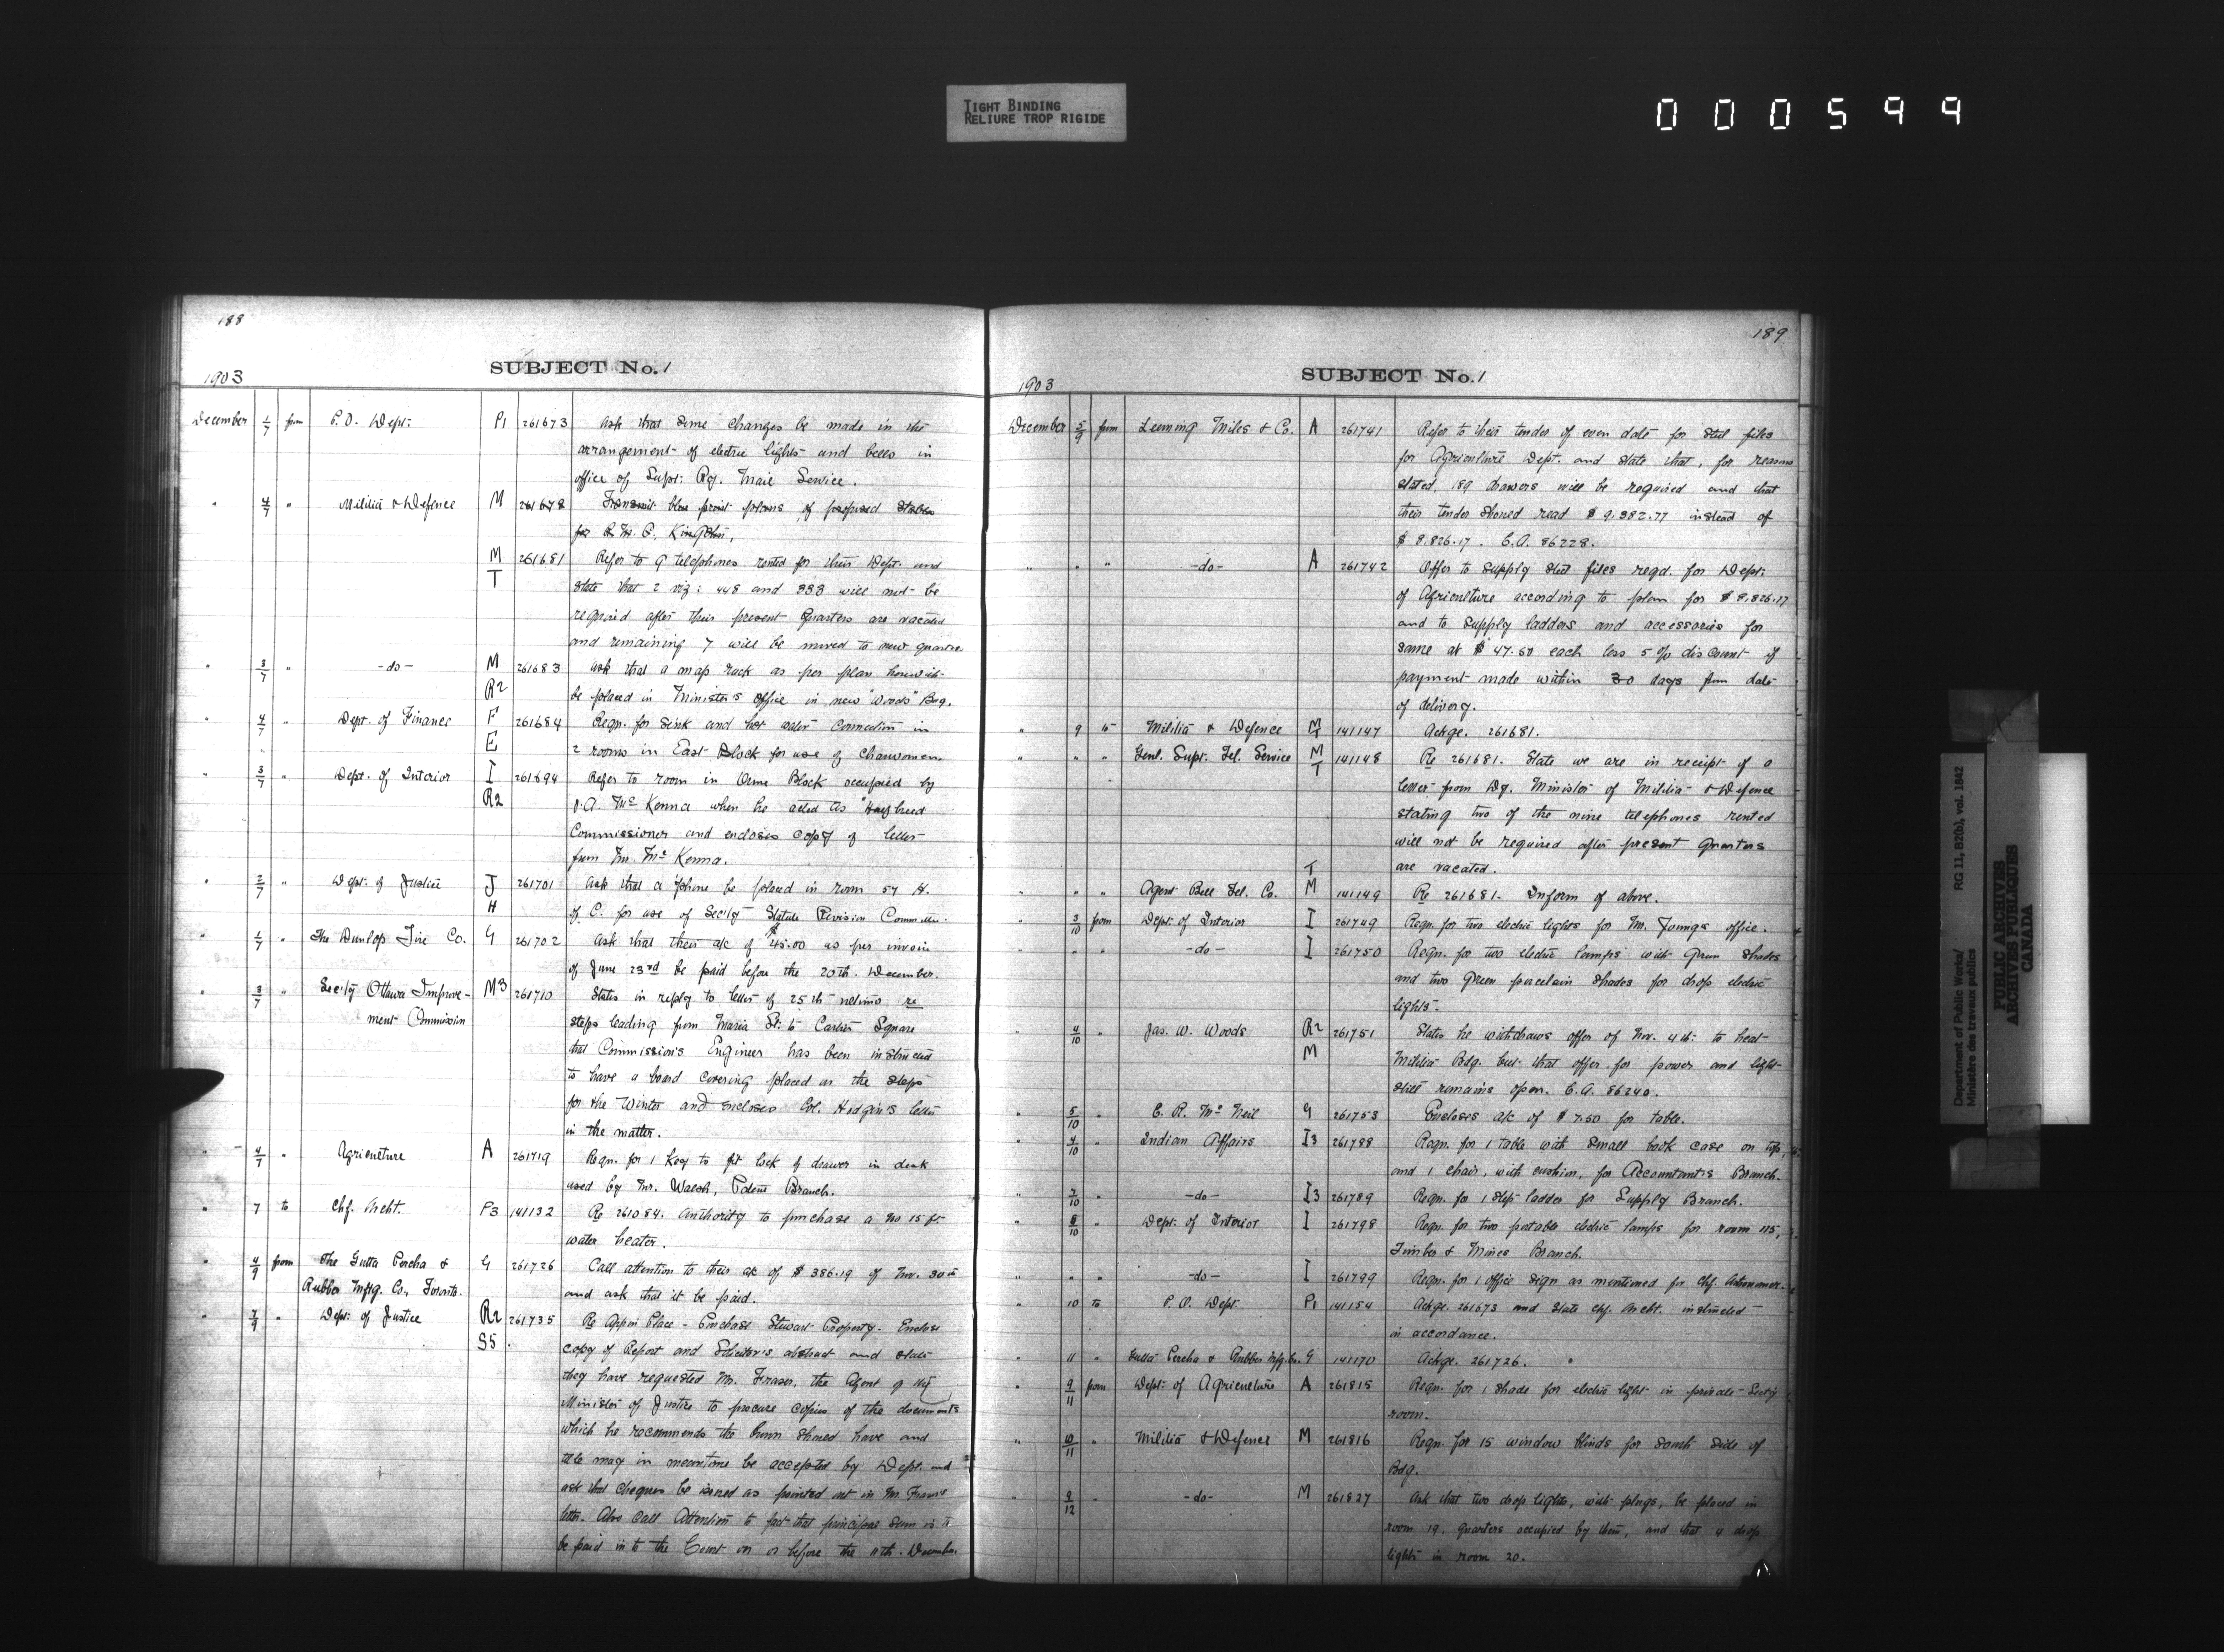 TIGHT BINDING
RELIURE TROP RIGIDE
000599
188
SUBJECT No. 1
1903
December 1/7 from P.O. Dept. P1 261673 Ask that some changes be made in the
arrangement of electric lights and bells in
office of Supt. Ry. Mail Service.
" 4/7 " Militia & Defence M 261678 Transmit blue print plans of proposed Stables
for R.M.C. Kingston,
M 261681 Refer to 9 telephones rented for their Dept. and
T state that 2 viz: 448 and 333 will not be
required after their present Quarters are vacated
and remaining 7 will be moved to new quarters
" 3/7 " -do- M 261683 Ask that a map rack as per plan herewith
R2 be placed in Minister's Office in new "Woods" Bdg.
" 4/7 " Dept. of Finance F 261684 Reqn. for sink and hot water connection in
E 2 rooms in East Block for use of Charwomen.
" 3/7 " Dept. of Interior I 261694 Refer to room in Orme Block occupied by
R2 J.A. McKenna when he acted as "Halfbreed
Commissioner and encloses copy of letter
from Mr. McKenna.
" 2/7 " Dept. of Justice J 261701 Ask that a 'phone be placed in room 57 H.
H of C. for use of Sec'ty Statute Revision Commttee.
" 1/7 " The Dunlop Tire Co. G 261702 Ask that their a/c of $45.00 as per invoice
of June 23rd be paid before the 20th. December.
" 3/7 " Sec'ty Ottawa Improve- M3 261710 States in reply to letter of 25th ultimo re
ment Commission steps leading from Maria St. to Cartier Square
that Commission's Engineer has been instructed
to have a board covering placed on the steps
for the Winter and encloses Col. Hodgin's letter
in the matter.
" 4/7 " Agriculture A 261719 Reqn. for 1 Key to fit lock of drawer in desk
used by Mr. Walsh, Patent Branch.
" 7 to Chf. Archt. P3 141132 Re 261084. Authority to purchase a No 15 ft.
water heater.
" 4/9 from The Gutta Percha & G 261726 Call attention to their a/c of $386.19 of Nov. 30th
Rubber Mfg. Co., Toronto. and ask that it be paid.
" 7/9 " Dept. of Justice R2 261735 Re Place - Purchase Stewart Property. Enclose
S5 copy of Report and Solicitor's abstract and state
they have requested Mr. Fraser, the Agent of
Minister of Justice to procure copies of the documents
which he recommends the Crown should have and
title may in meantime be accepted by Dept. and
ask that cheques be issued as pointed out in Mr. Fraser's
letter. Also call Attention to fact that principal sum is to
be paid in to the Court on or before the 11th. December.
189
SUBJECT No. 1
1903
December 5/9 from Leeming Miles & Co. A 261741 Refer to their tender of even date for steel files
for Agriculture Dept. and state that, for reasons
stated, 189 drawers will be required and that
their tender should read $9,382.77 instead of
$8,826.17. C.A. 86228.
" " " -do- A 261742 Offer to supply steel files reqd. for Dept.
of Agriculture according to plan for $8,826.17
and to supply ladders and accessories for
same at $47.50 each less 5% discount if
payment made within 30 days from date
of delivery.
" 9 to Militia & Defence M T 141147 Ackge. 261681.
" " " Genl. Supt. Tel. Service M T 141148 Re 261681. State we are in receipt of a
letter from Dy. Minister of Militia & Defence
stating two of the nine telephones rented
will not be required after present Quarters
are vacated.
" " " Agent Bell Tel. Co. T M 141149 Re 261681. Inform of above.
" 3/10 from Dept. of Interior I 261749 Reqn. for two electric lights for Mr. Young's office.
" " " -do- I 261750 Reqn. for two electric lamps with green shades
and two green porcelain shades for drop electric
lights.
" 4/10 " Jas. W. Woods R2 261751 States he withdraws offer of Nov. 4th. to heat
M Militia Bdg. but that offer for power and light
still remains open. C.A. 86240.
" 5/10 " C. R. McNeil G 261753 Encloses a/c of $7.50 for table.
" 4/10 " Indian Affairs I3 261788 Reqn. for 1 table with small book case on top,
and 1 chair, with cushion, for Accountant's Branch.
" 7/10 " -do- I3 261789 Reqn. for 1 step ladder for Supply Branch.
" 8/10 " Dept. of Interior I 261798 Reqn. for two portable electric lamps for room 115,
Timber & Mines Branch.
" " " -do- I 261799 Reqn. for 1 office sign as mentioned for Chf. Astronomer.
" 10 to P.O. Dept. P1 141154 Ackge. 261673 and state Chf. Archt. instructed
in accordance.
" 11 " Gutta Percha & Rubber Mfg. Co. G 141170 Ackge. 261726.
" 9/11 from Dept. of Agriculture A 261815 Reqn. for 1 shade for electric light in private Sect'y
room.
" 10/11 " Militia & Defence M 261816 Reqn. for 15 window blinds for south side of
Bdg.
" 9/12 " -do- M 261827 Ask that two drop lights, with plugs, be placed in
room 19. quarters occupied by them, and that 4 drop
lights in room 20.
Department of Public Works/ RG 11, B2(b), vol. 1842
Ministère des travaux publics
PUBLIC ARCHIVES
ARCHIVES PUBLIQUES
CANADA